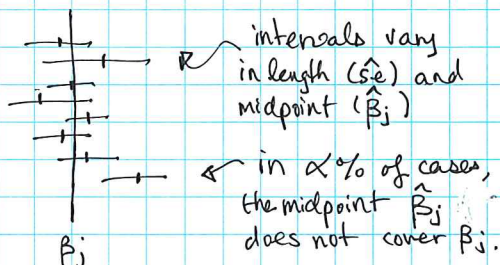 intervals vary
in length (ŝe) and
midpoint (β̂j)
in α% of cases,
the midpoint β̂j
does not cover βj.
βj